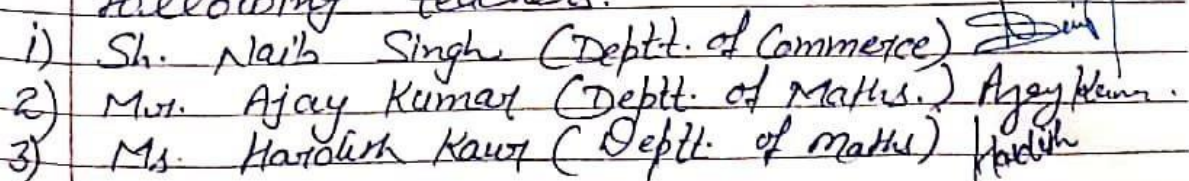 following teachers.
1) Sh. Naib Singh (Deptt. of Commerce)
2) Mr. Ajay Kumar (Deptt. of Maths.) Ajay Kumar.
3) Ms. Hardish Kaur (Deptt. of Maths) Hardish